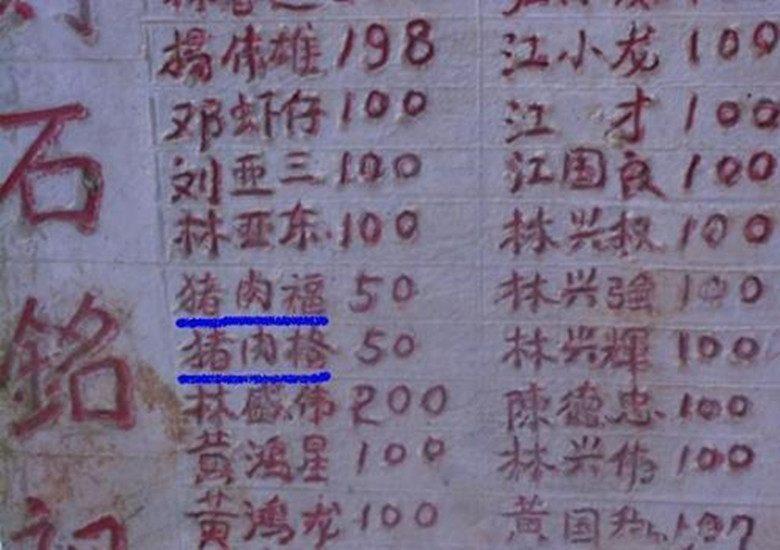 石
銘
揚伟雄 198 江小龙 100
邓虾仔 100 江 才 100
刘亚三 100 江国良 100
林亚东 100 林兴权 100
猪肉福 50 林兴強 100
猪肉格 50 林兴輝 100
林盛伟 200 陳德忠 100
黄鸿星 100 林兴伟 100
黄鸿龙 100 黄国